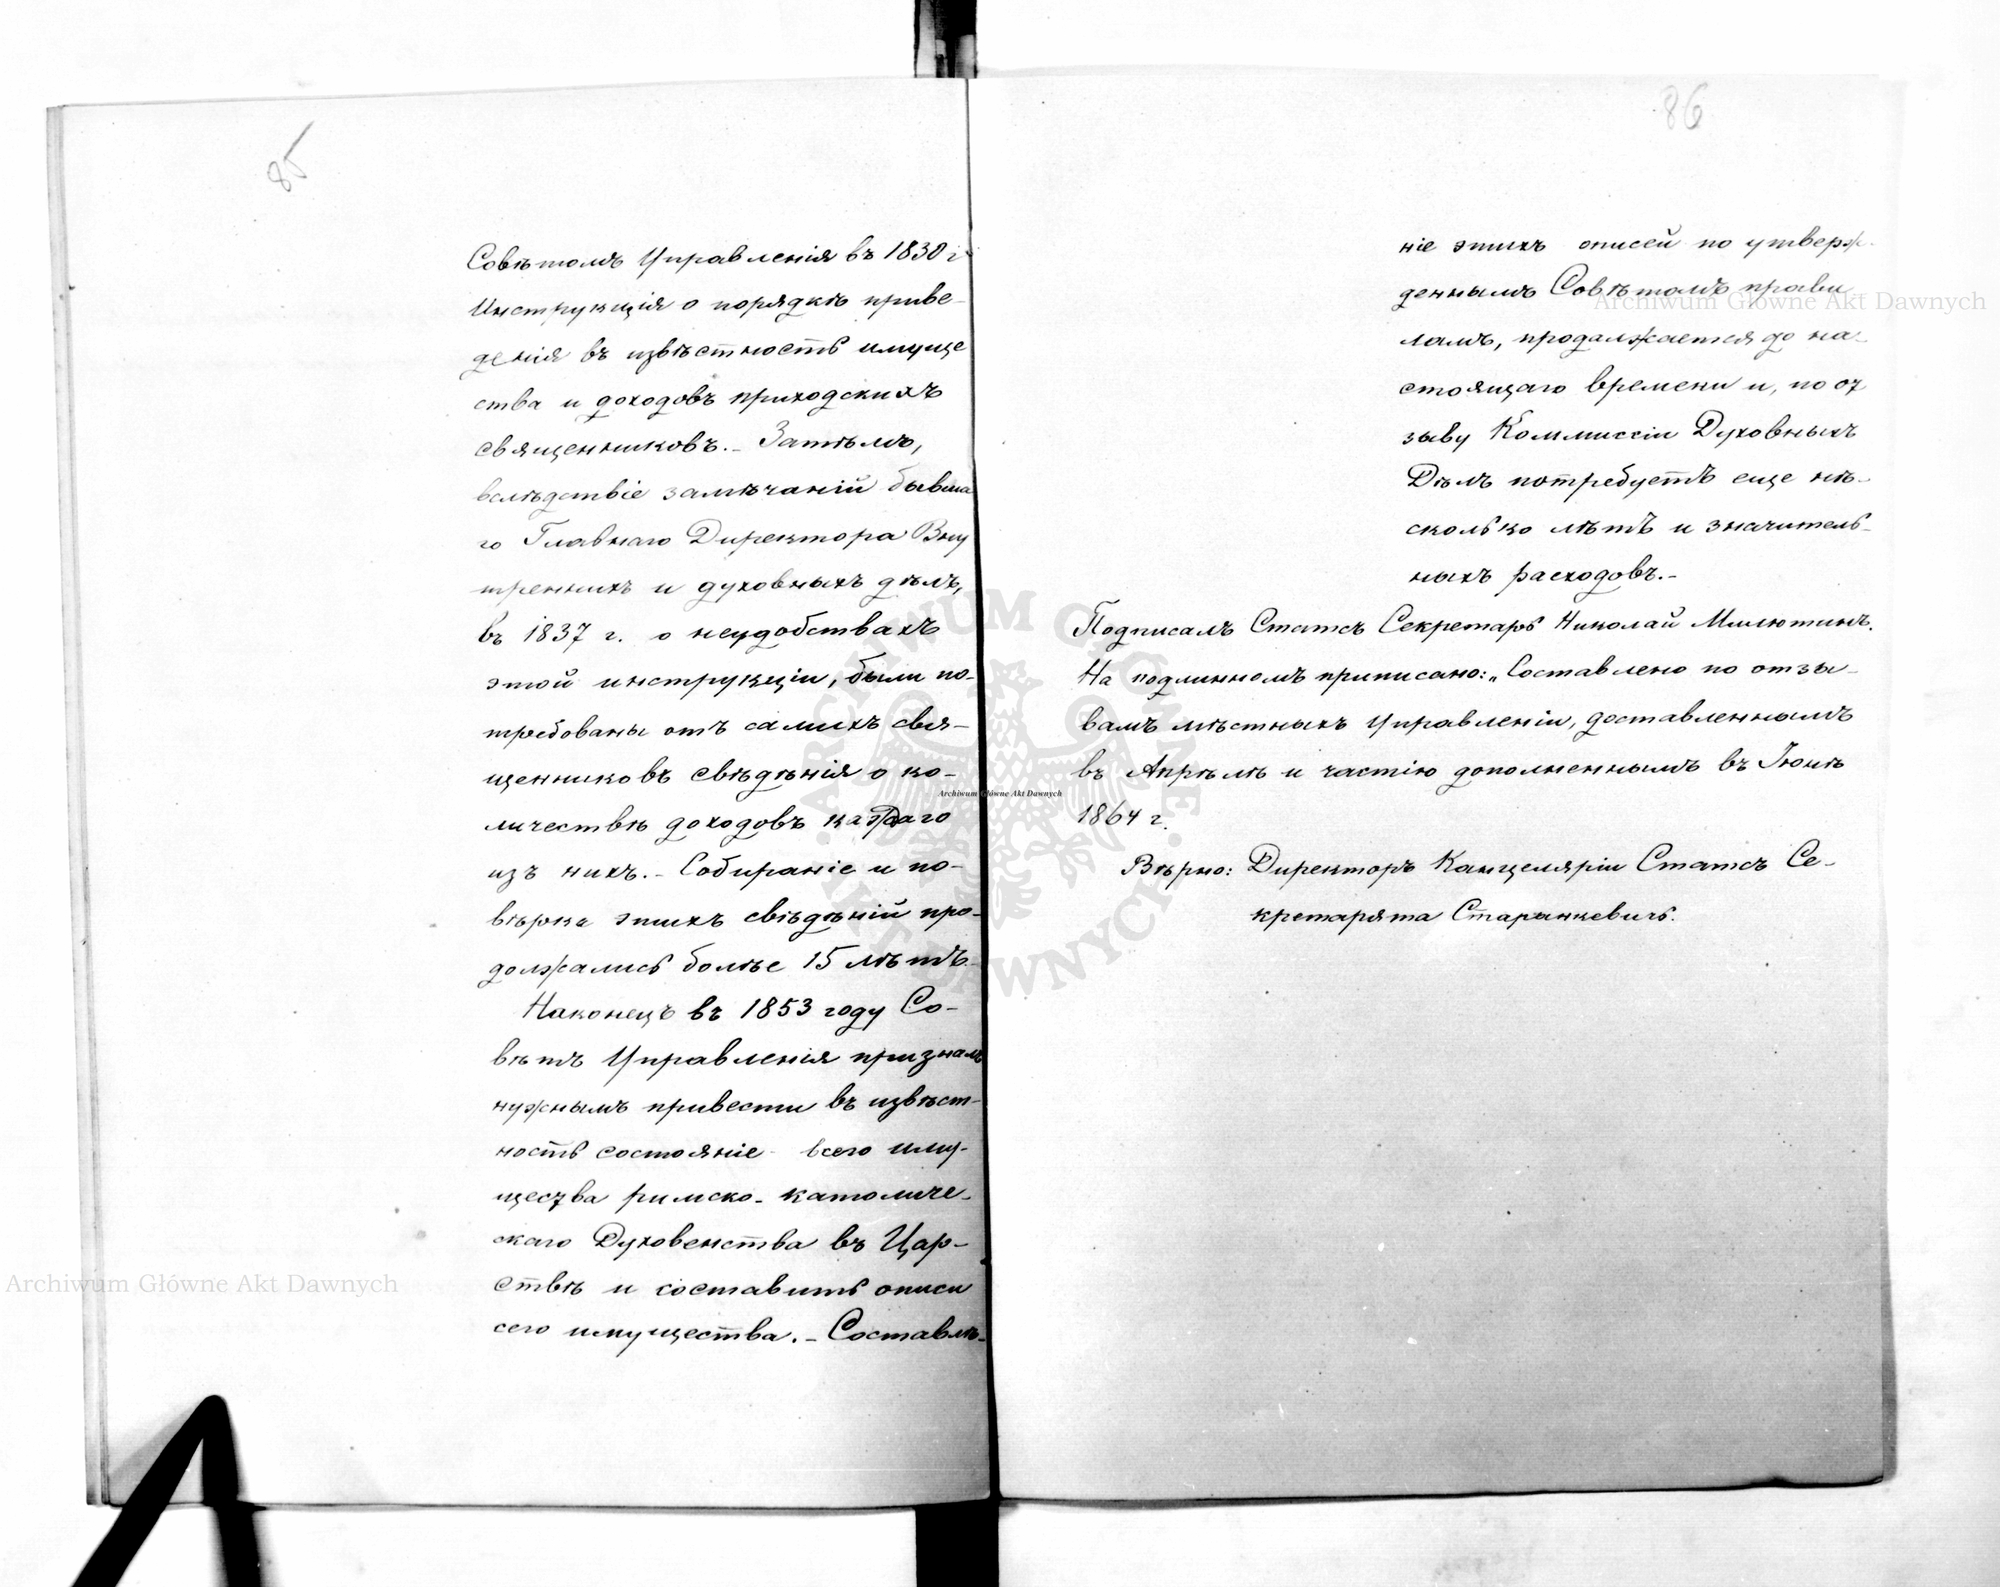 85
Совѣтомъ Управленія въ 1830 г
Инструкція о порядкѣ приве-
денія въ извѣстность имуще
ства и доходовъ приходскихъ
священниковъ.- Затѣмъ,
вслѣдствіе замѣчаній бывша
го Главнаго Директора Вну
тренихъ и духовныхъ дѣлъ,
въ 1837 г. о неудобствахъ
этой инструкціи, были по-
требованы отъ самихъ свя-
щенниковъ свѣдѣнія о ко-
личествѣ доходовъ каждаго
изъ нихъ.- Собираніе и по-
вѣрка этихъ свѣдѣній про-
должались болѣе 15 лѣтъ.-
Наконецъ въ 1853 году Со-
вѣтъ Управленія призналъ
нужнымъ привести въ извѣст-
ность состояніе всего иму-
щества римско-католиче-
скаго Духовенства въ Цар-
ствѣ и составить описи
сего имущества.- Составле-
86
ніе этихъ описей по утверж-
деннымъ Совѣтомъ прави
ламъ, продалжается до на-
стоящаго времени и, по от
зыву Коммиссіи Духовныхъ
Дѣлъ потребуетъ еще нѣ-
сколько лѣтъ и значитель-
ныхъ расходовъ.-
Подписалъ Статсъ Секретарь Николай Милютинъ.
На подлинномъ приписано: „Составлено по отзы-
вамъ мѣстныхъ Управленіи, доставленнымъ
въ Апрѣлѣ и частію дополненнымъ въ Іюнѣ
1864 г.
Вѣрно: Директоръ Канцеляріи Статсъ Се-
кретарята Старынкевичъ.
Archiwum Główne Akt Dawnych
Archiwum Główne Akt Dawnych
Archiwum Główne Akt Dawnych
ARCHIWUM GŁÓWNE AKT DAWNYCH